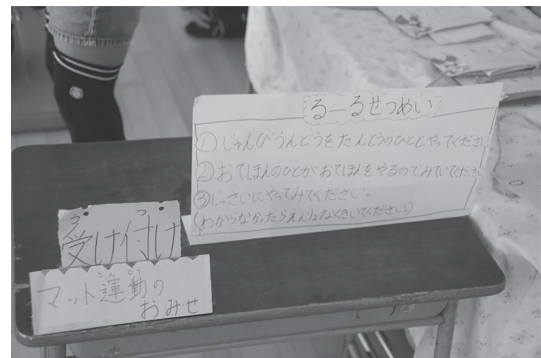 るーるせつめい
①じゅんびうんどうをたんとうのひととやってください
②おてほんのひとがおてほんをやるのでみていてください
③じっさいにやってみてください。
(わからなかったらえんりょなくきいてください)
受け付け
マット運動の
おみせ